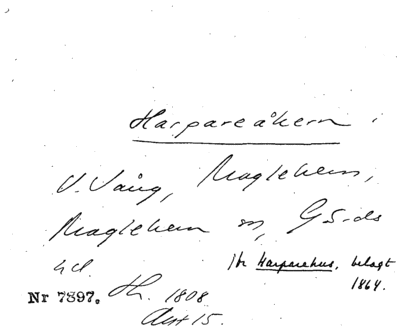 Harpareåkern
V. Vång, Maglehem,
Maglehem sn, Gs-ds
hd.
jfr Harparehus, belagt
1864.
Nr 7897. Sk. 1808
Akt 15.